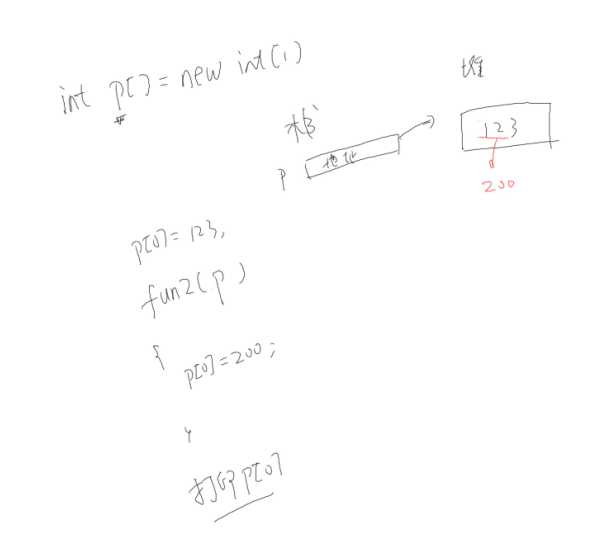 int p[] = new int(1)
堆
栈
p 地址
123
200
p[0]=123,
fun2(p)
{
p[0]=200;
}
打印p[0]